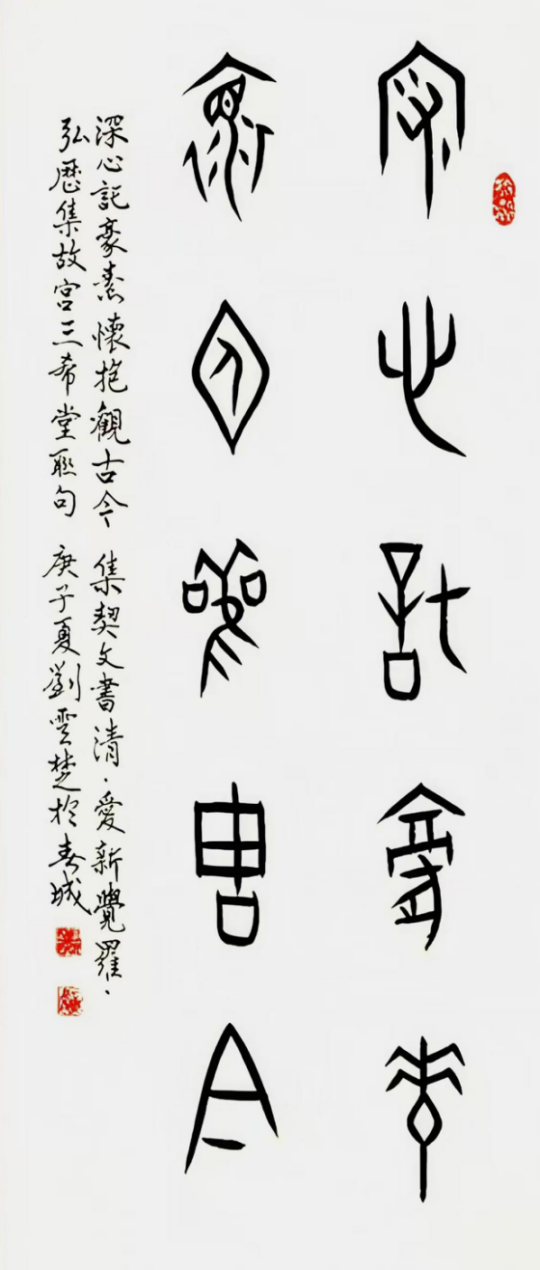 深心託豪素
懷抱觀古今
深心託豪素懷抱觀古今 集契文書清·愛新覺羅·
弘歷集故宮三希堂聯句 庚子夏劉雲楚於春城